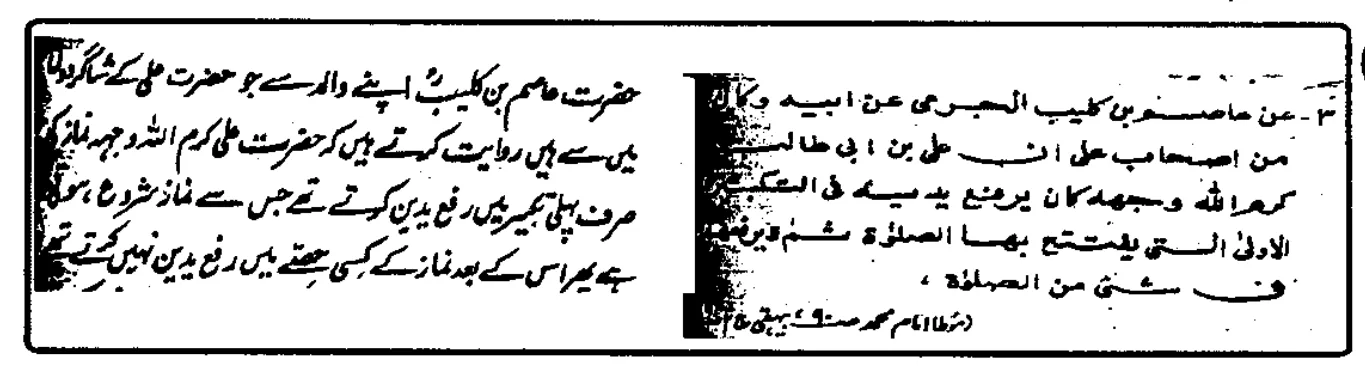 ۳- عن عاصم بن كليب الجرمی عن ابیه وكان
من اصحاب علی ان علی بن ابی طالب
كرم الله وجهه كان یرفع یدیه فی التكبیرة
الاولیٰ التی یفتتح بها الصلوٰة ثم لا یرفعهما
فی شئی من الصلوٰة ،
(مؤطا امام محمد صـ۹۰، بیہقی ج۲
حضرت عاصم بن کلیبؒ اپنے والد سے جو حضرت علی کے شاگردوں
میں سے ہیں روایت کرتے ہیں کہ حضرت علی کرم اللہ وجہہ نماز کی
صرف پہلی تکبیر میں رفع یدین کرتے تھے جس سے نماز شروع ہوتی
ہے پھر اس کے بعد نماز کے کسی حصے میں رفع یدین نہیں کرتے تھے